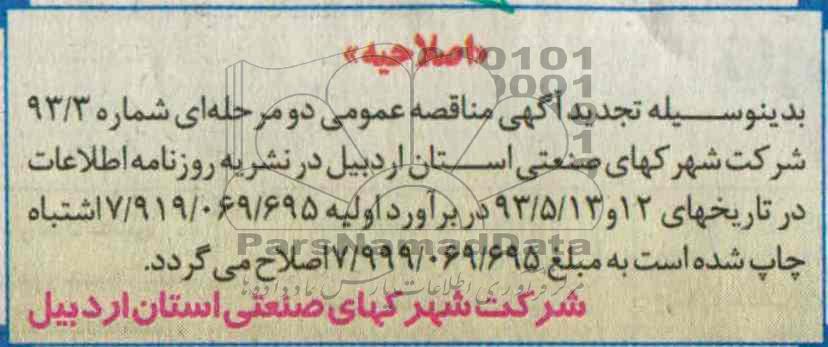 «اصلاحیه»
بدینوسیله تجدید آگهی مناقصه عمومی دو مرحله‌ای شماره ۹۳/۳
شرکت شهرکهای صنعتی استان اردبیل در نشریه روزنامه اطلاعات
در تاریخهای ۱۲و۹۳/۵/۱۳ در برآورد اولیه ۷/۹۱۹/۰۶۹/۶۹۵ اشتباه
چاپ شده است به مبلغ ۷/۹۹۹/۰۶۹/۶۹۵ اصلاح می گردد.
شرکت شهرکهای صنعتی استان اردبیل
ParsNamadData